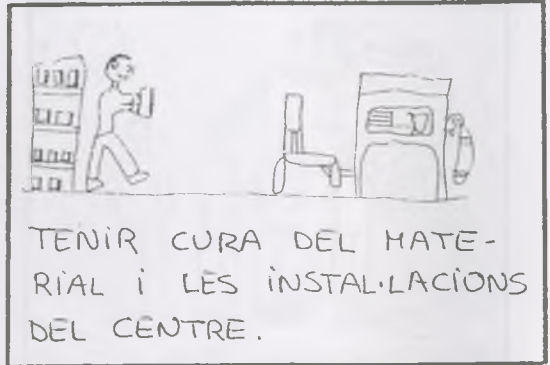 TENiR CURA DEL MATE-
RiAL i LES iNSTAL·LACiONS
DEL CENTRE.